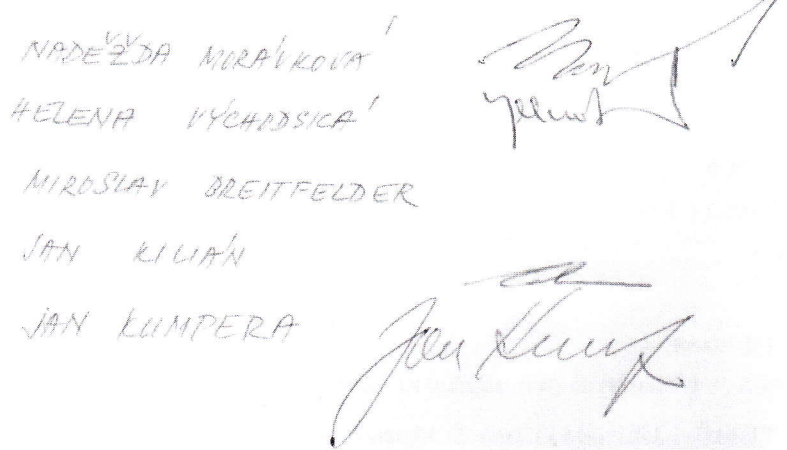 NADĚŽDA MORÁVKOVÁ
HELENA VÝCHODSKÁ
MIROSLAV BREITFELDER
JAN KILIÁN
JAN KUMPERA